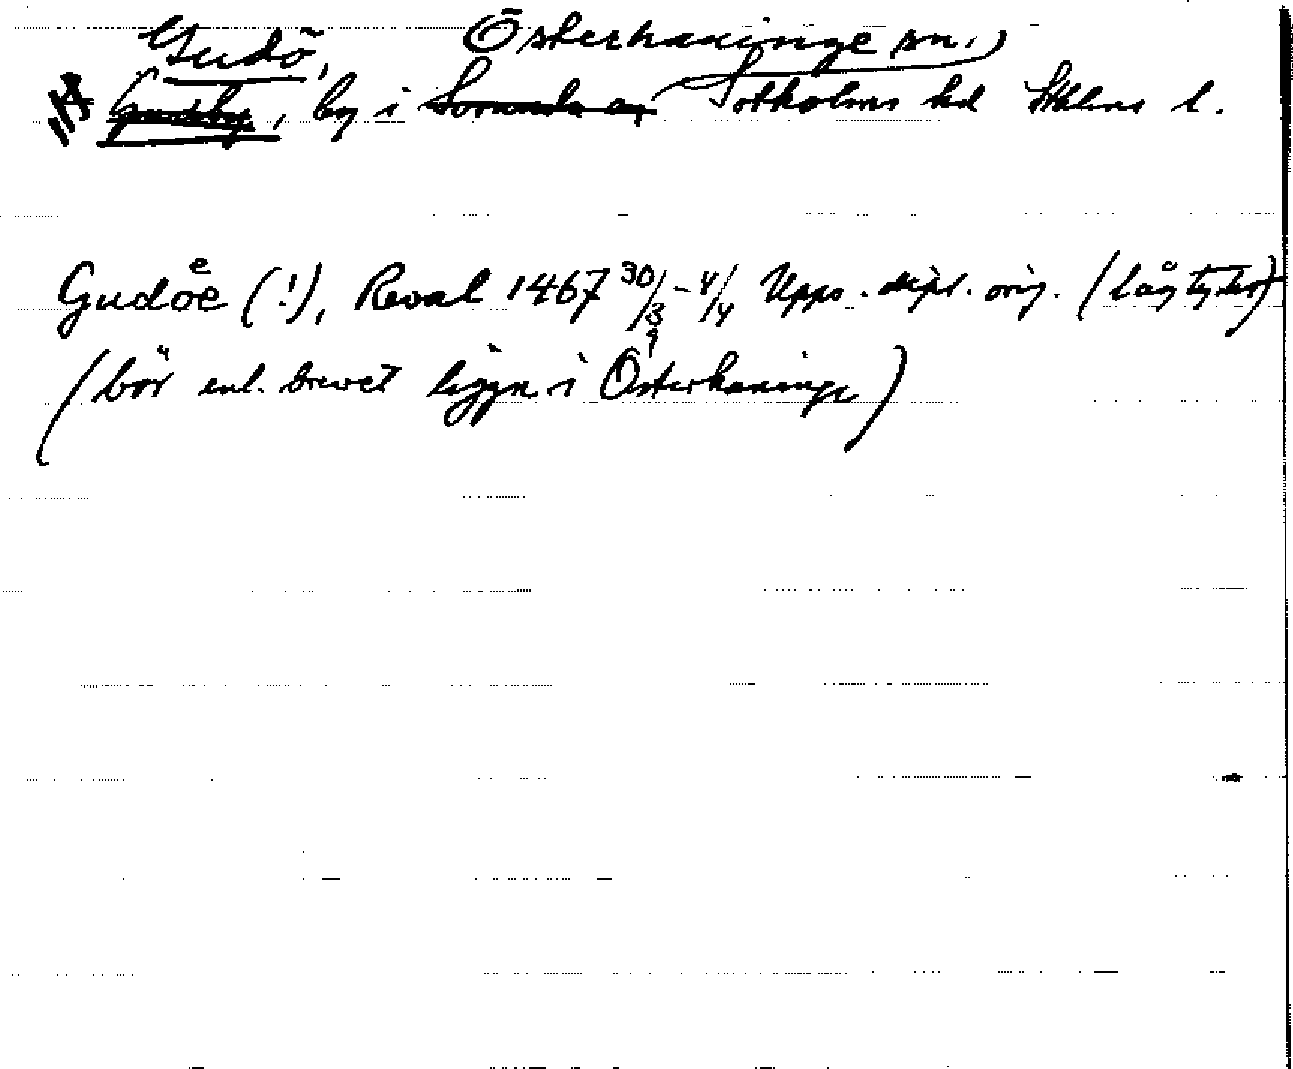 Gudö, Österhaninge sn.,
Gudby, by i Sorunda sn Sotholms hd Sthlms l.
Gudöe (!), Reval 1467 30/3 - 4/4 Upps. dipl. orig. (lågtyskt)
(bör enl. brevet ligga i Österhaninge)